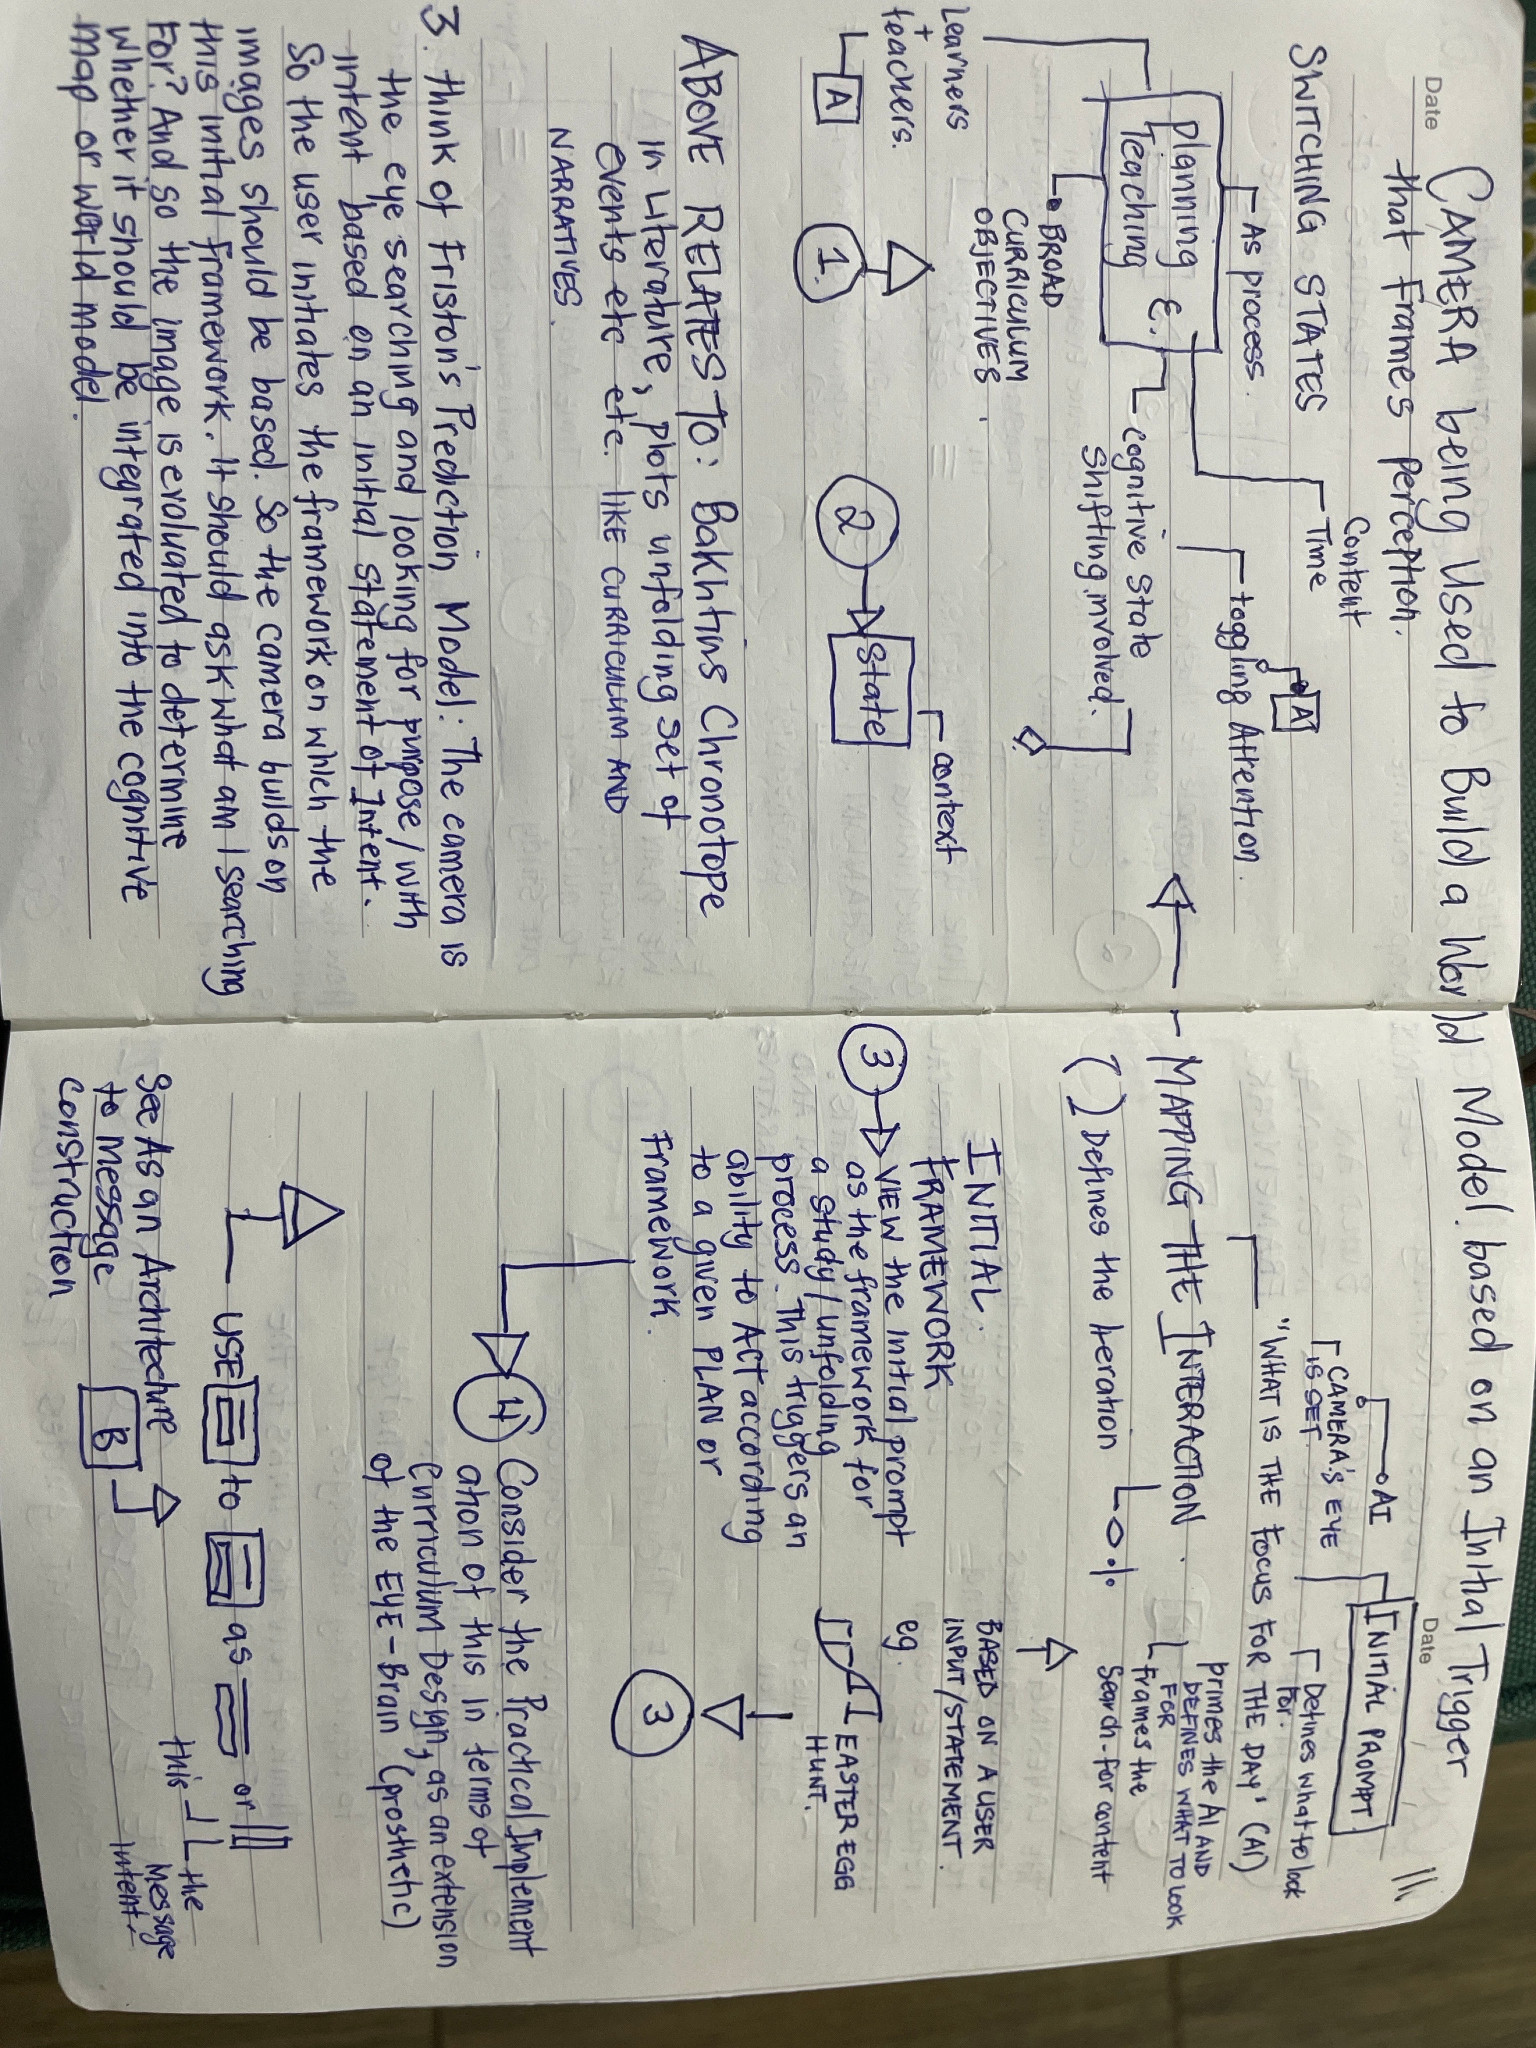 Date
CAMERA being Used to Build a World Model based on an Initial Trigger
that Frames perception.
SWITCHING STATES
Content
Time
A
As process.
toggling Attention.
Planning &
Teaching
Cognitive State
Shifting involved.
BROAD
CURRICULUM
OBJECTIVES.
Learners
+
teachers.
A
1.
2
State
context
ABOVE RELATES TO: Bakhtins Chronotope
in Literature, plots unfolding set of
events etc etc. LIKE CURRICULUM AND
NARRATIVES.
3. think of Friston's Prediction Model: The camera is
the eye searching and looking for purpose/with
intent based on an initial statement of Intent.
So the user initiates the framework on which the
images should be based. So the camera builds on
this initial framework. It should ask what am I searching
For? And so the image is evaluated to determine
whether it should be integrated into the cognitive
map or world model.
Date
11.
AI
INITIAL PROMPT
CAMERA'S EYE
IS SET.
Defines what to look
for.
"WHAT IS THE FOCUS FOR THE DAY' (AI)
primes the AI AND
DEFINES WHAT TO LOOK
FOR
Frames the
Search-for content
MAPPING THE INTERACTION.
( ) Defines the iteration
INITIAL:
FRAMEWORK
BASED ON A USER
INPUT/STATEMENT.
3
VIEW the initial prompt
as the framework for
a study/unfolding
process. This triggers an
ability to ACT according
to a given PLAN or
Framework.
eg.
EASTER EGG
HUNT.
3
4
Consider the Practical Implement
ation of this in terms of
Curriculum Design, as an extension
of the EYE-Brain (prosthetic)
USE to as or
See As an Architecture
to message
construction
B
this
the
Message
Intent.